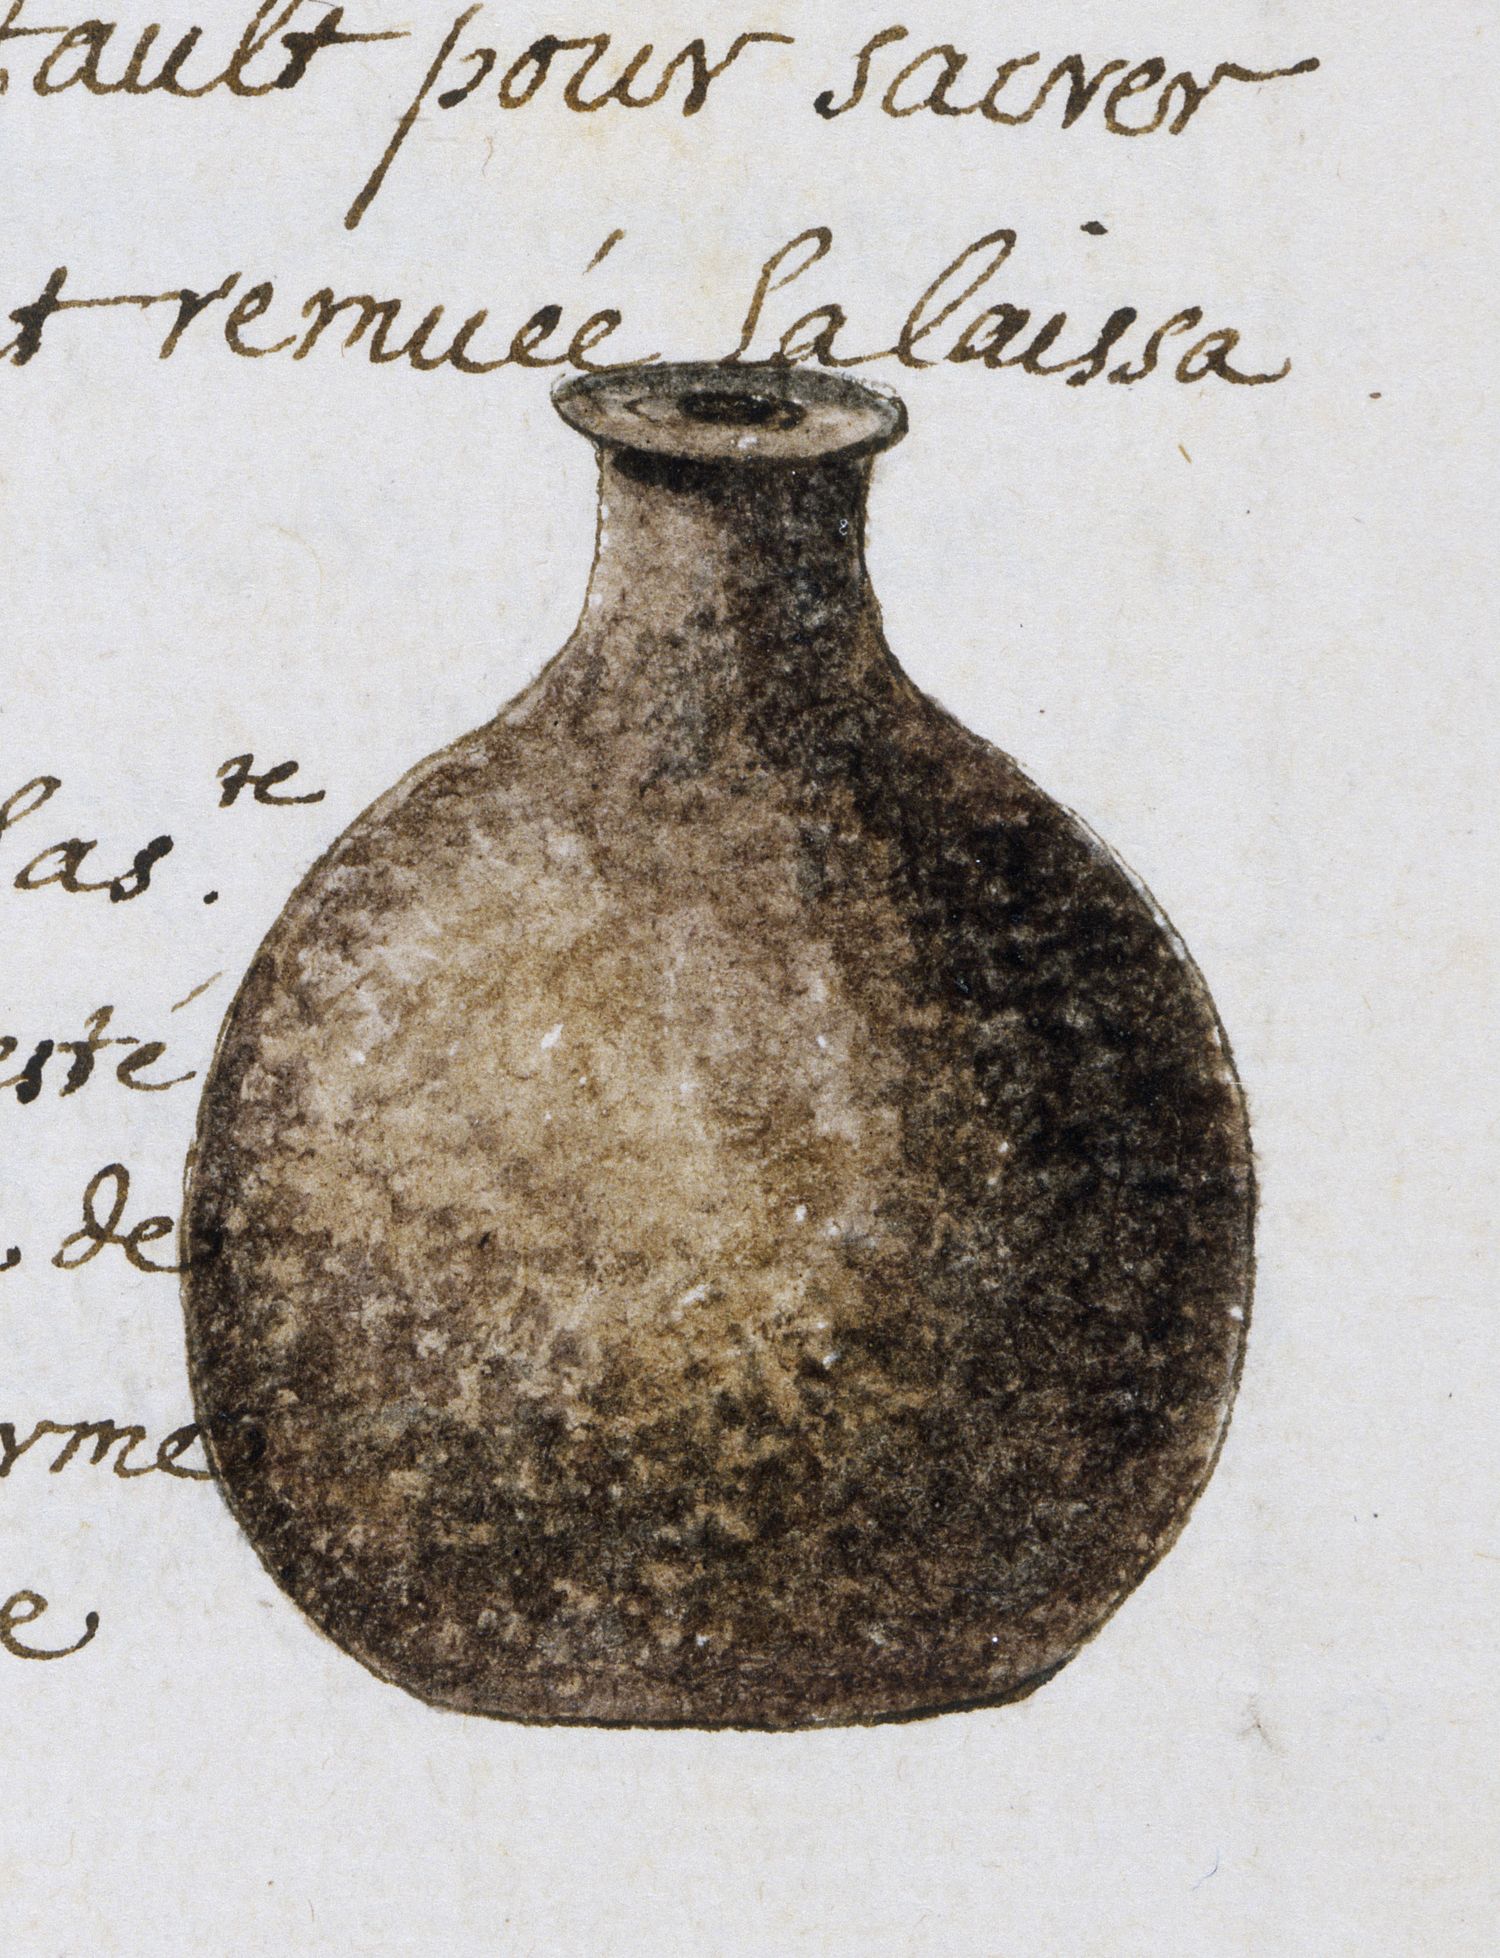 tault pour sacrer
t remuée la laissa
las. te
esté
. de
rme
e